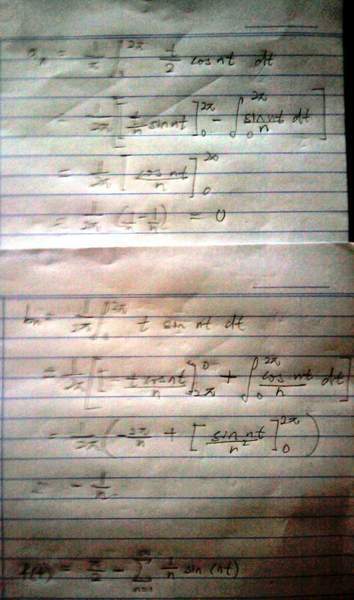 aₙ = 1/π ∫₀^2π t/2 cos nt dt
= 1/2π [ [t/n sin nt]₀^2π - ∫₀^2π sin nt/n dt ]
= 1/2π [cos nt/n]₀^2π
= 1/2π (1/n - 1/n) = 0
bₙ = 1/2π ∫₀^2π t sin nt dt
= 1/2π [ [- t cos nt/n]^0_2π + ∫₀^2π cos nt/n dt ]
= 1/2π ( -2π/n + [sin nt/n²]₀^2π )
= - 1/n
f(t) = π/2 - ∑_{n=1}^∞ 1/n sin (nt)